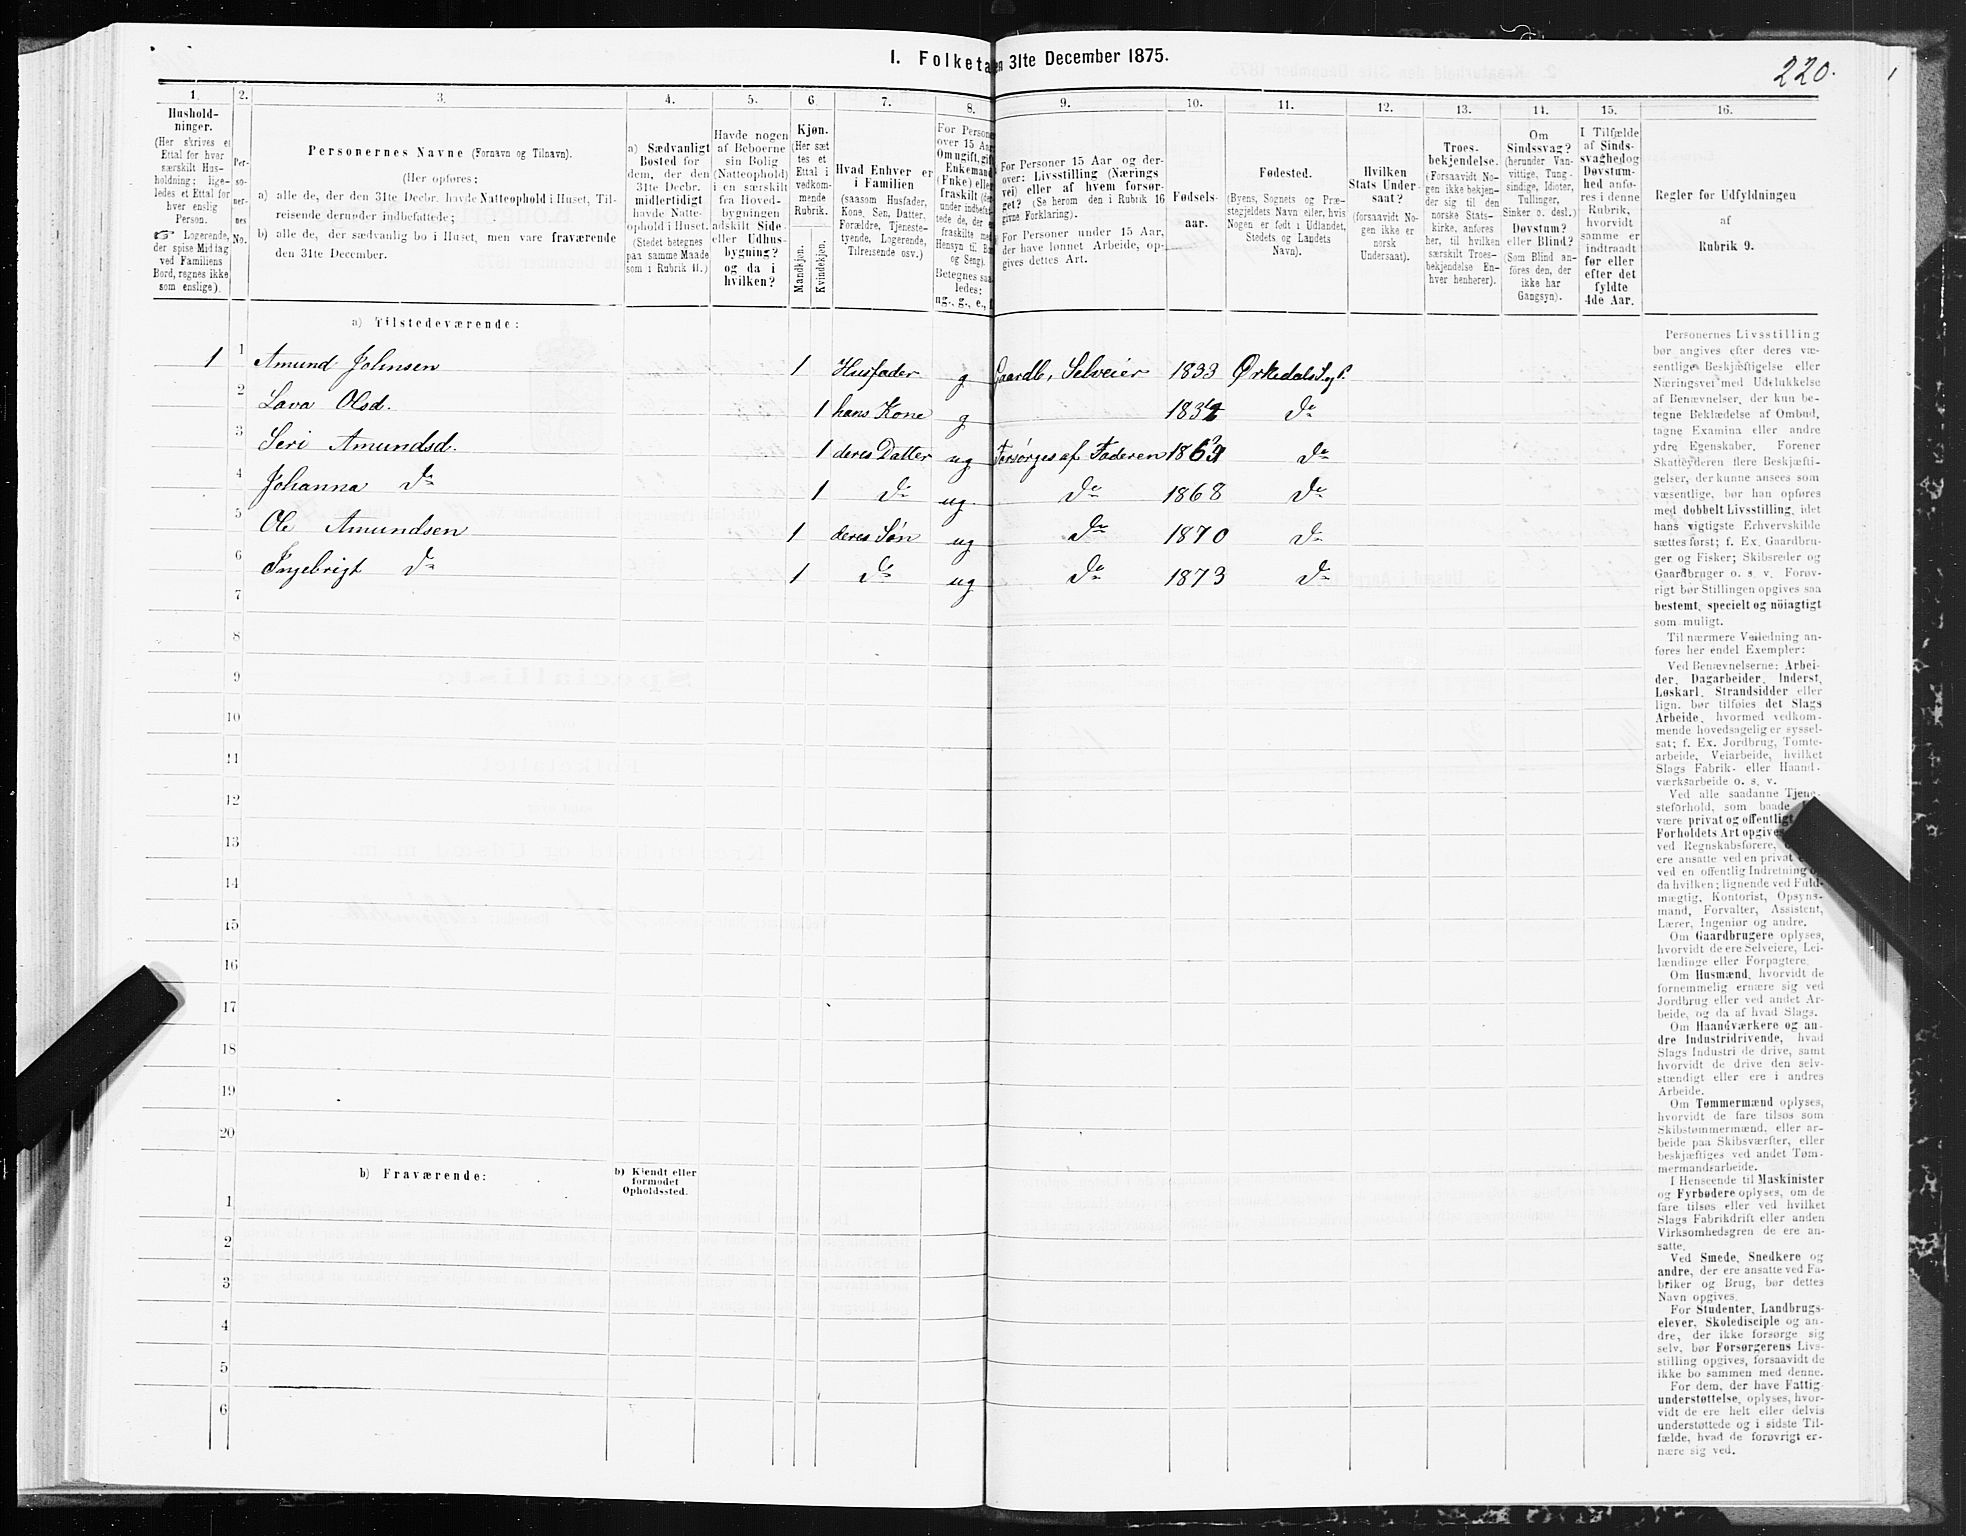 I. Folketa en 31te December 1875.
220.
1.
2.
3.
4.
5.
6
7.
8.
9.
10.
11.
12.
13.
14.
15.
16.
Hushold-
ninger.
(Her skrives et
Ettal for hver
særskilt Hus-
holdning; lige-
ledes et Ettal for
hver enslig
Person.
☞ Logerende,
der spise Middag
ved Familiens
Bord, regnes ikke
som enslige).
Per-
so-
ner-
nes
No.
Personernes Navne (Fornavn og Tilnavn).
(Her opføres:
a) alle de, der den 31te Decbr. havde Natteophold i Huset, Til-
reisende derunder indbefattede;
b) alle de, der sædvanlig bo i Huset, men vare fraværende
den 31te December.
a) Sædvanligt
Bosted for
dem, der den
31te Decbr.
midlertidigt
havde Natte-
ophold i Huset.
(Stedet betegnes
paa samme Maade
som i Rubrik 11.)
Havde nogen
af Beboerne
sin Bolig
(Natteophold)
i en særskilt
fra Hoved-
bygningen
adskilt Side-
eller Udhus-
bygning?
og da i
hvilken?
Kjøn.
(Her sæt
tes et
Ettal i
vedkom-
mende
Rubrik.
Mandkjøn.
Kvindekjøn.
Hvad Enhver er
i Familien
(saasom Husfader,
Kone, Søn, Datter,
Forældre, Tjeneste-
tyende, Logerende,
Tilreisende osv.)
For Persone
over 15 Aar
Om ugift, gift
Enkemand
(Enke) eller
fraskilt
under indbefat
tede de, der
fraskilte med
Hensyn til B
og Seng).
Betegnes saa
ledes:
ug., g., e., f
For Personer 15 Aar og der-
over: Livsstilling (Nærings
vei) eller af hvem forsør-
get? (Se herom den i Rubrik 16
givne Forklaring).
For Personer under 15 Aar,
der have lønnet Arbeide, op-
gives dettes Art.
Fødsels-
aar.
Fødested.
(Byens, Sognets og Præ-
stegjeldets Navn eller, hvis
Nogen er født i Udlandet,
Stedets og Landets
Navn).
Hvilken
Stats Under-
saat?
(forsaavidt No-
gen ikke er
norsk
Undersaat).
Troes-
bekjendelse.
(Forsaavidt No-
gen ikke bekjen-
der sig til den
norske Stats-
kirke, anføres
her, til hvilken
særskilt Troes-
bekjendelse En-
hver henhører).
Om
Sindssvag?
(herunder Van-
vittige, Tung-
sindige, Idioter,
Tullinger,
Sinker o. desl.)
Døvstum?
eller Blind?
(Som Blind an-
føres den, der
ikke har
Gangsyn).
I Tilfælde
af Sinds-
svaghed og
Døvstum-
hed anfø-
res i denne
Rubrik,
hvorvidt
samme er
indtraadt
før eller
efter det
fyldte
4de Aar.
Regler for Udfyldningen
af
Rubrik 9.
a) Tilstedeværende:
1 1 Amund Johnsen 1 Husfader g Gaardb, Selveier 1833 Ørkedals S. og P.
2 Lava Olsd. 1 hans Kone g Do
3 Seri Amundsd. 1 deres Datter ug Forsørges af Faderen Do
4 Johanna Do 1 Do ug Do 1868 Do
5 Ole Amundsen 1 deres Søn ug Do 1870 Do
6 Ingebrigt Do 1 Do ug Do 1873 Do
7
8
9
10
11
12
13
14
15
16
17
18
19
20
b) Fraværende:
b) Kjendt eller
formodet
Opholdssted.
1
2
3
4
5
6
Personernes Livsstilling
bør angives efter deres væ-
sentlige Beskjæftigelse eller
Næringsvei med Udelukkelse
af Benævnelser, der kun be-
tegne Beklædelse af Ombud,
tagne Examina eller andre
ydre Egenskaber. Forener
Skatteyderen flere Beskjæfti-
gelser, der kunne ansees som
væsentlige, bør han opføres
med dobbelt Livsstilling, idet
hans vigtigste Erhvervskilde
sættes først; f. Ex. Gaardbru-
ger og Fisker; Skibsreder og
Gaardbruger o. s. v. Forøv-
rigt bør Stillingen opgives saa
bestemt, specielt og nöiagtigt
som muligt.
Til nærmere Veiledning an-
føres her endel Exempler:
Ved Benævnelserne: Arbei-
der, Dagarbeider, Inderst,
Løskarl, Strandsidder eller
lign. bør tilføies det Slags
Arbeide, hvormed vedkom-
mende hovedsagelig er syssel-
sat; f. Ex. Jordbrug, Tomte-
arbeide, Veiarbeide, hvilket
Slags Fabrik- eller Haand-
værksarbeide o. s. v.
Ved alle saadanne Tjene-
steforhold, som baade
være privat og offentligt
Forholdets Art opgives
ved Regnskabsførere,
ere ansatte ved en privat
ved en offentlig Indretning
da hvilken; lignende ved Fuld-
mægtig, Kontorist, Opsyns-
mand, Forvalter, Assistent,
Lærer, Ingeniør og andre.
Om Gaardbrugere oplyses,
hvorvidt de ere Selveiere, Lei-
lændinge eller Forpagtere.
Om Husmænd, hvorvidt de
fornemmelig ernære sig ved
Jordbrug eller ved andet Ar-
beide, og da af hvad Slags.
Om Haandværkere og an-
dre Industridrivende, hvad
Slags Industri de drive, samt
hvorvidt de drive den selv-
stændigt eller ere i andres
Arbeide.
Om Tømmermænd oplyses,
hvorvidt de fare tilsøs som
Skibstømmermænd, eller ar-
beide paa Skibsværfter, eller
beskjæftiges ved andet Tøm-
mermandsarbeide.
I Henseende til Maskinister
og Fyrbødere oplyses, om de
fare tilsøs eller ved hvilket
Slags Fabrikdrift eller anden
Virksomhedsgren de ere an-
satte.
Ved Smede, Snedkere og
andre, der ere ansatte ved Fa-
briker og Brug, bør dettes
Navn opgives.
For Studenter, Landbrugs-
elever, Skoledisciple og an-
dre, der ikke forsørge sig
selv, bør Forsørgerens Livs-
stilling opgives, forsaavidt de
ikke bo sammen med denne.
For dem, der have Fattig-
understøttelse, oplyses, hvor-
vidt de ere helt eller delvis
understøttede og i sidste Til-
fælde, hvad de forøvrigt er-
nære sig ved.